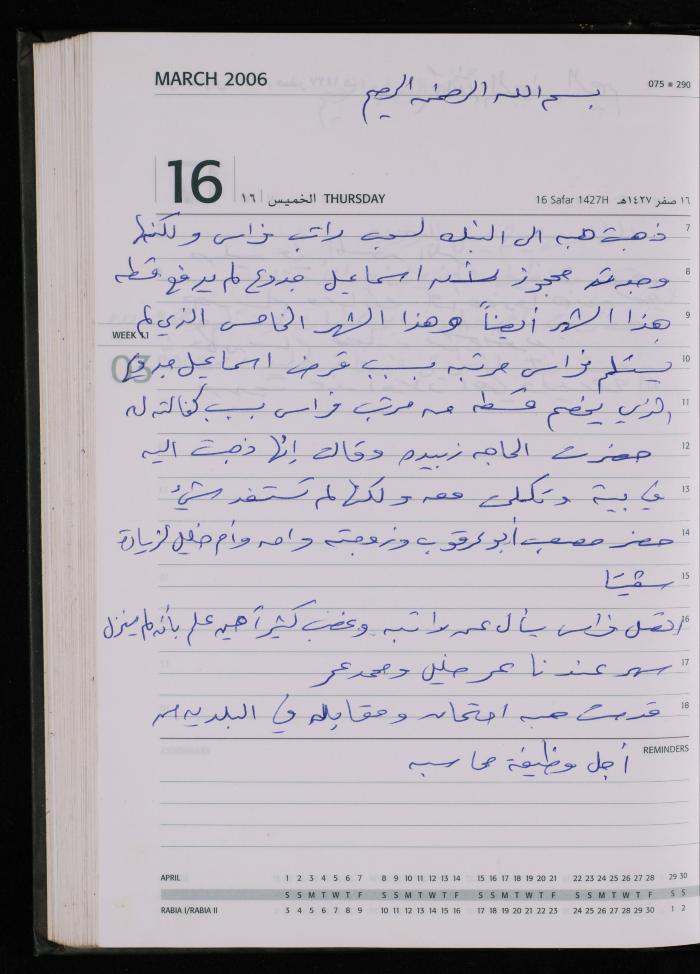 MARCH 2006
075 ■ 290
بسم الله الرحمن الرحيم
16
١٦ الخميس THURSDAY
16 Safar 1427H ١٦ صفر ١٤٢٧هـ
7
ذهبت هبه الى البنك لسحب راتب فراس ولكنها
8
وجدته محجوز لأن اسماعيل جدوع لم يدفع قسطه
9
هذا الشهر أيضاً وهذا الشهر الخامس الذي لم
WEEK 11
03
10
يستلم فراس مرتبه بسبب قرض اسماعيل جدوع
11
الذي يخصم قسطه من مرتب فراس بسب كفالته له
12
حضرت الحاجه زبيده وقالت إنها ذهبت اليه
13
في بيته وتكلمت معه ولكنها لم تستفد شيء
14
حضر مصعب أبو عرقوب وزوجته وامه وأم خليل لزيارة
15
بيتنا
16
اتصل فراس يسأل عن راتبه وغضب كثيراً حين علم بأنه لم ينزل
17
سهر عندنا عمر خليل ومحمد عمر
18
قدمت هبه امتحان ومقابله في البلديه من
REMINDERS
أجل وظيفة محاسبه
APRIL 1 2 3 4 5 6 7 8 9 10 11 12 13 14 15 16 17 18 19 20 21 22 23 24 25 26 27 28 29 30
S S M T W T F S S M T W T F S S M T W T F S S M T W T F S S
RABIA I/RABIA II 3 4 5 6 7 8 9 10 11 12 13 14 15 16 17 18 19 20 21 22 23 24 25 26 27 28 29 30 1 2